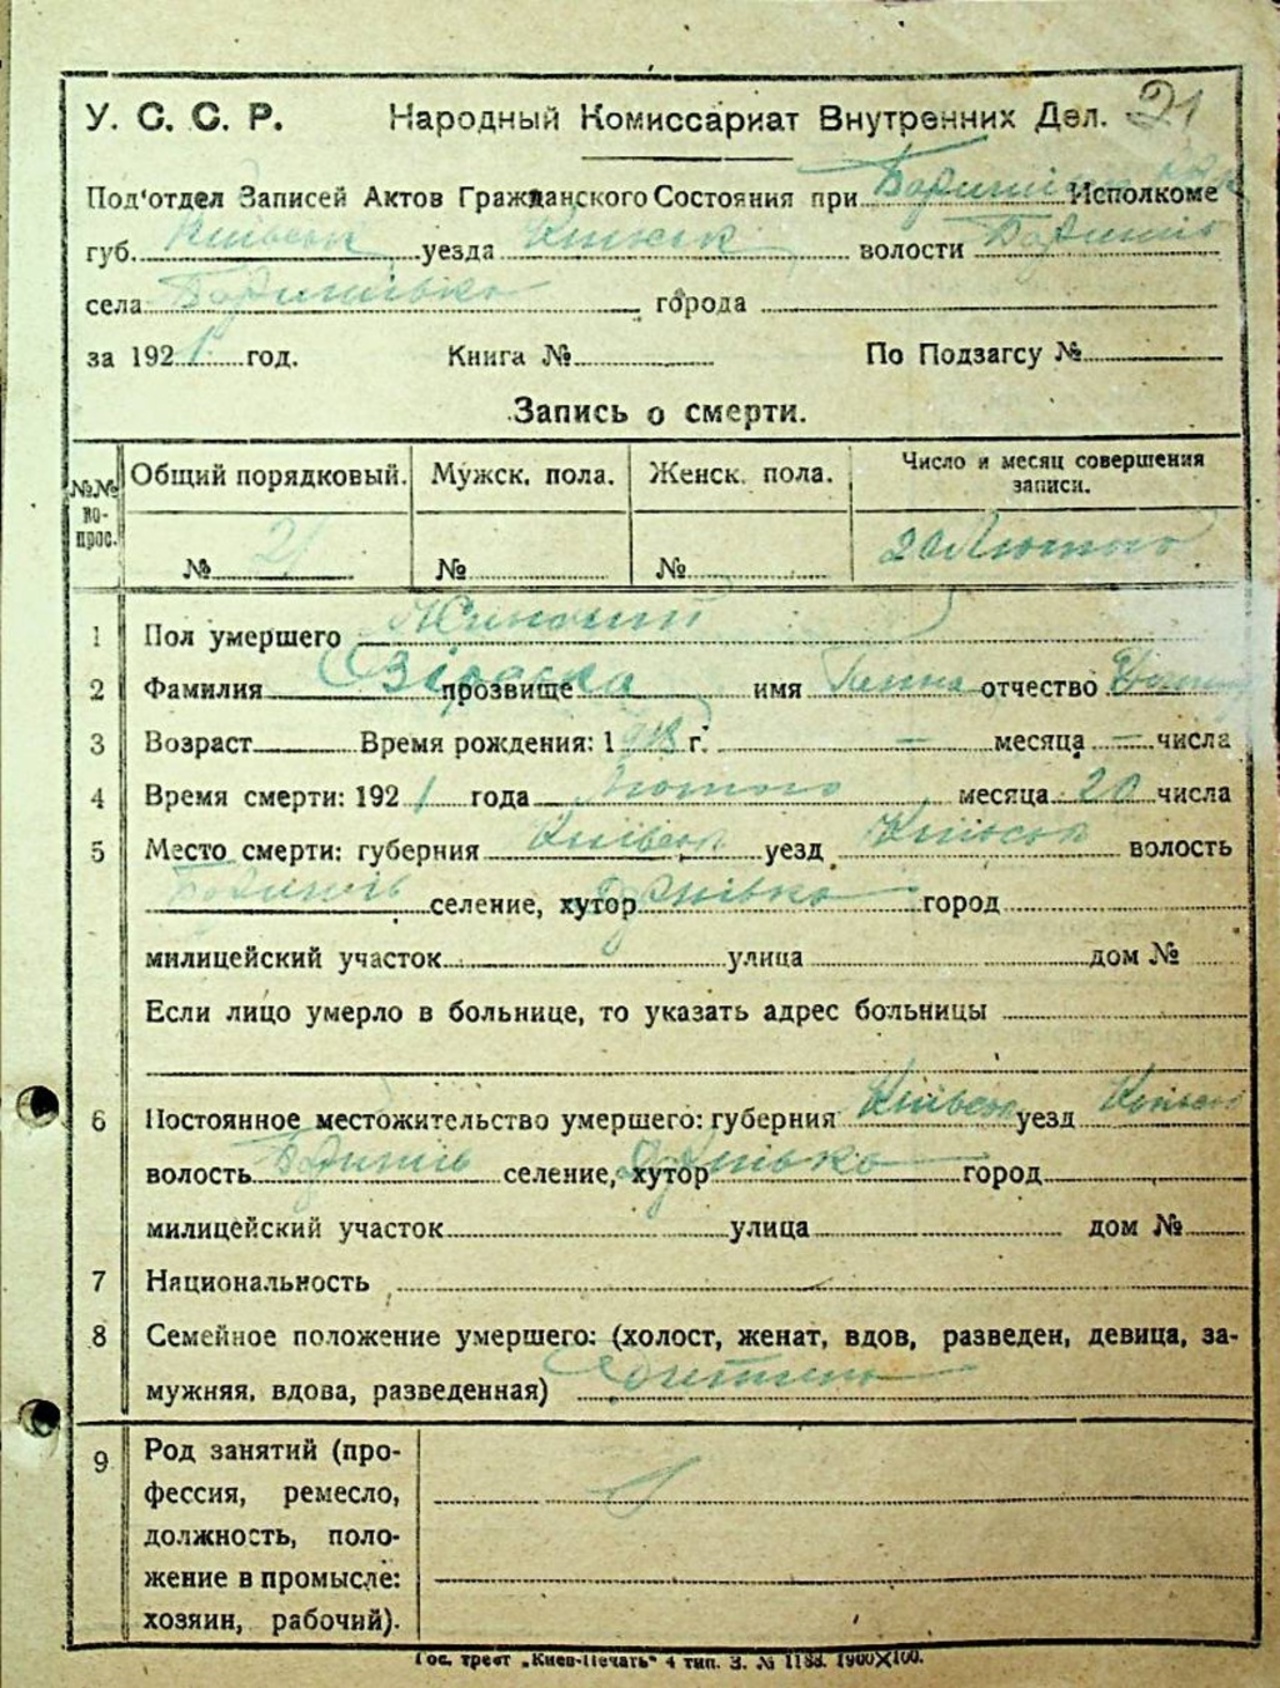 У. С. С. Р. Народный Комиссариат Внутренних Дел. 21
Под'отдел Записей Актов Гражданского Состояния при Исполкоме
губ. уезда волости
села города
за 1921 год. Книга № По Подзагсу №
Запись о смерти.
№№ во-прос. Общий порядковый. Мужск. пола. Женск. пола. Число и месяц совершения записи.
№ 21 № № 20 Лютого
1 Пол умершего
2 Фамилия прозвище имя Ганна отчество
3 Возраст Время рождения: 1918 г. — месяца — числа
4 Время смерти: 1921 года Лютого месяца 20 числа
5 Место смерти: губерния Київськ уезд Київськ волость
селение, хутор город
милицейский участок улица дом №
Если лицо умерло в больнице, то указать адрес больницы
6 Постоянное местожительство умершего: губерния Київськ уезд Київськ
волость селение, хутор город
милицейский участок улица дом №
7 Национальность
8 Семейное положение умершего: (холост, женат, вдов, разведен, девица, за-
мужняя, вдова, разведенная)
9 Род занятий (про-
фессия, ремесло,
должность, поло-
жение в промысле:
хозяин, рабочий).
Гос. трест „Киев-Печать“ 4 тип. З. № 1188. 1900X100.